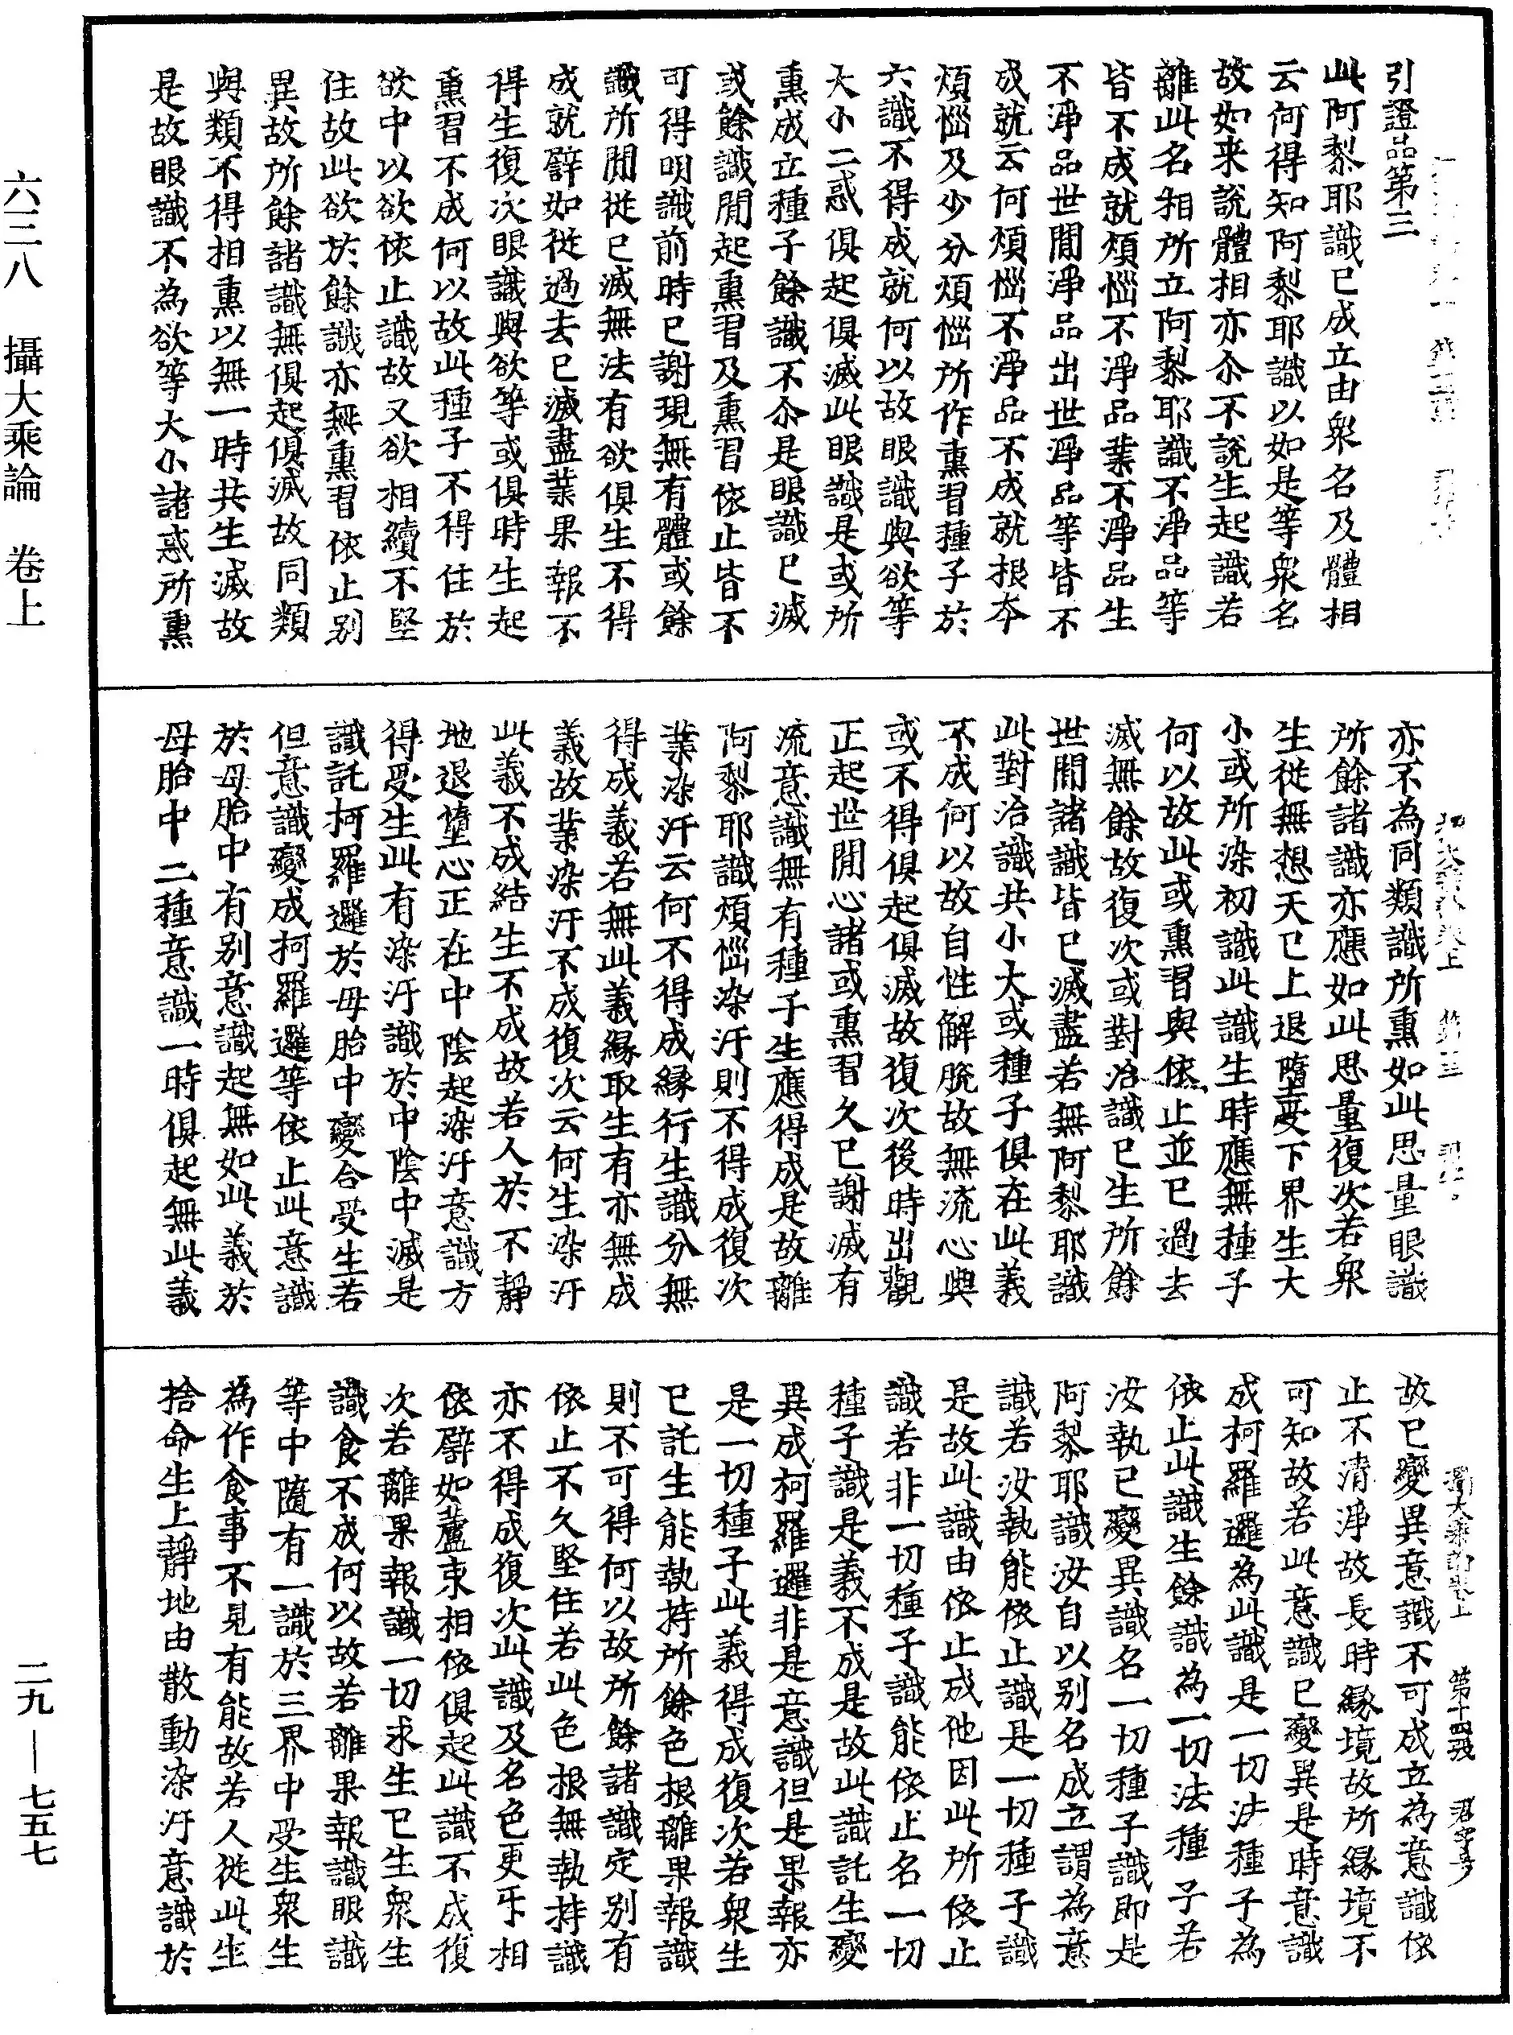 引證品第三
此阿黎耶識已成立由衆名及體相
云何得知阿黎耶識以如是等衆名
故如来說體相亦尒不說生起識若
離此名相所立阿黎耶識不淨品等
皆不成就煩惱不淨品業不淨品生
不淨品世間淨品出世淨品等皆不
成就云何煩惱不淨品不成就根本
煩惱及少分煩惱所作熏習種子於
六識不得成就何以故眼識與欲等
大小二惑俱起俱滅此眼識是或所
熏成立種子餘識不尒是眼識已滅
或餘識間起熏習及熏習依止皆不
可得眼識前時已謝現無有體或餘
識所間從已滅無法有欲俱生不得
成就譬如從過去已滅盡業果報不
得生復次眼識與欲等或俱時生起
熏習不成何以故此種子不得住於
欲中以欲依止識故又欲相續不堅
住故此欲於餘識亦無熏習依止别
異故所餘諸識無俱起俱滅故同類
與類不得相熏以無一時共生滅故
是故眼識不為欲等大小諸惑所熏
亦不為同類識所熏如此思量眼識
所餘諸識亦應如此思量復次若衆
生從無想天已上退墮受下界生大
小或所染初識此識生時應無種子
何以故此或熏習與依止並已過去
滅無餘故復次或對治識已生所餘
世間諸識皆已滅盡若無阿黎耶識
此對治識共小大或種子俱在此義
不成何以故自性解脫故無流心與
或不得俱起俱滅故復次後時出觀
正起世間心諸或熏習久已謝滅有
流意識無有種子生應得成是故離
阿黎耶識煩惱染汙則不得成復次
業染汙云何不得成緣行生識分無
得成義若無此義緣取生有亦無成
義故業染汙不成復次云何生染汙
此義不成結生不成故若人於不靜
地退墮心正在中陰起染汙意識方
得受生此有染汙識於中陰中滅是
識託柯羅邏於母胎中變合受生若
但意識變成柯羅邏等依止此意識
於母胎中有别意識起無如此義於
母胎中二種意識一時俱起無此義
故已變異意識不可成立為意識依
止不清淨故長時緣境故所緣境不
可知故若此意識已變異是時意識
成柯羅邏為此識是一切法種子為
依止此識生餘識為一切法種子若
汝執已變異識名一切種子識即是
阿黎耶識汝自以别名成立謂為意
識若汝執能依止識是一切種子識
是故此識由依止成他因此所依止
識若非一切種子識能依止名一切
種子識是義不成是故此識託生變
異成柯羅邏非是意識但是果報亦
是一切種子此義得成復次若衆生
已託生能執持所餘色根離果報識
則不可得何以故所餘諸識定别有
依止不久堅住若此色根無執持識
亦不得成復次此識及名色更㸦相
依譬如蘆束相依俱起此識不成復
次若離果報識一切求生已生衆生
識食不成何以故若離果報識眼識
等中隨有一識於三界中受生衆生
為作食事不見有能故若人從此生
捨命生上靜地由散動染汙意識於
攝大乘論卷上　第十四張
六三八　攝大乘論　卷上
二九—七五七